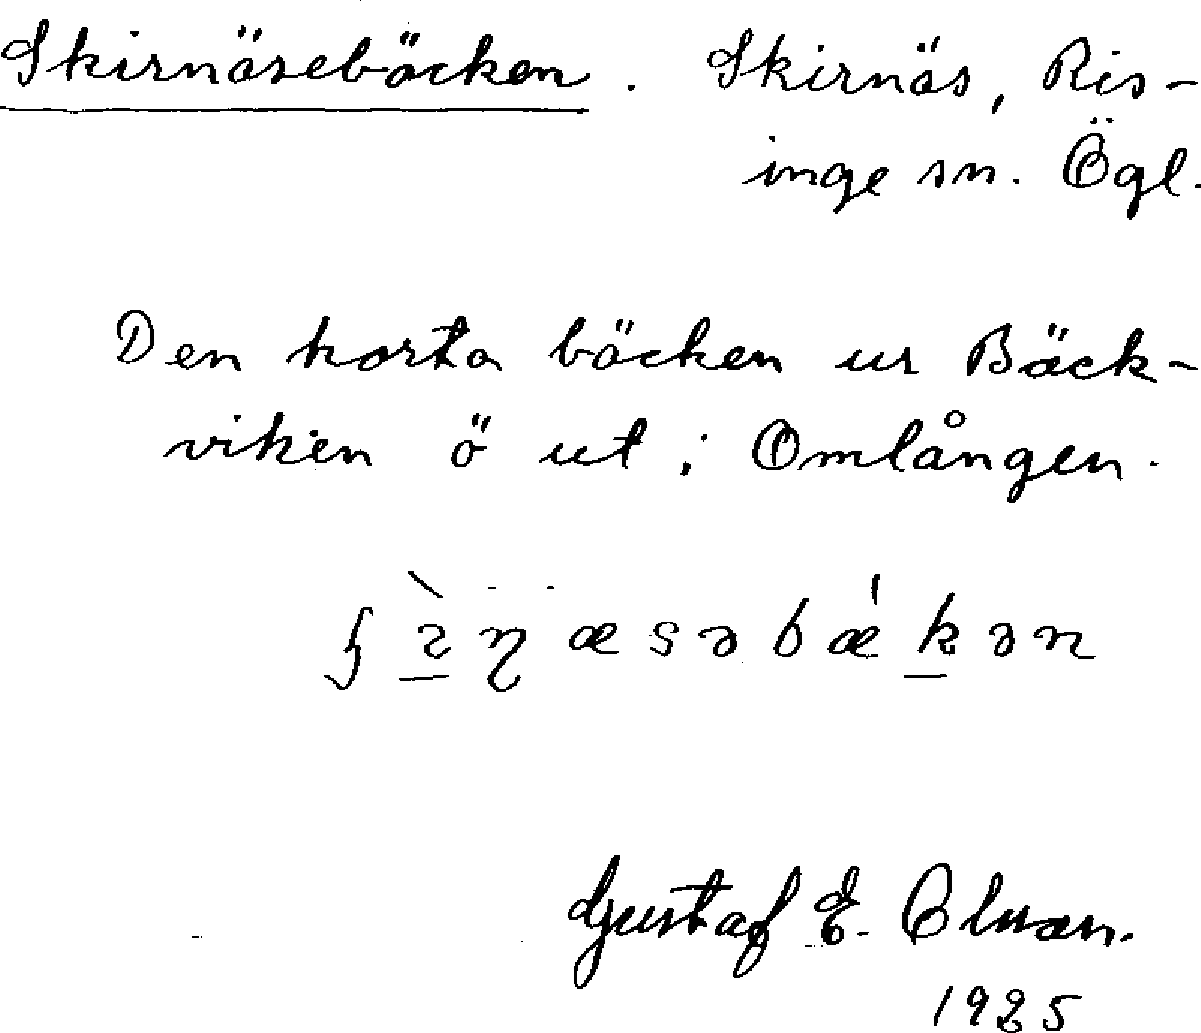 Skirnäsebäcken. Skirnäs, Ris-
inge sn. Ögl.
Den korta bäcken ur Bäck-
viken ö ut i Omlången.
Gustaf E.
1925